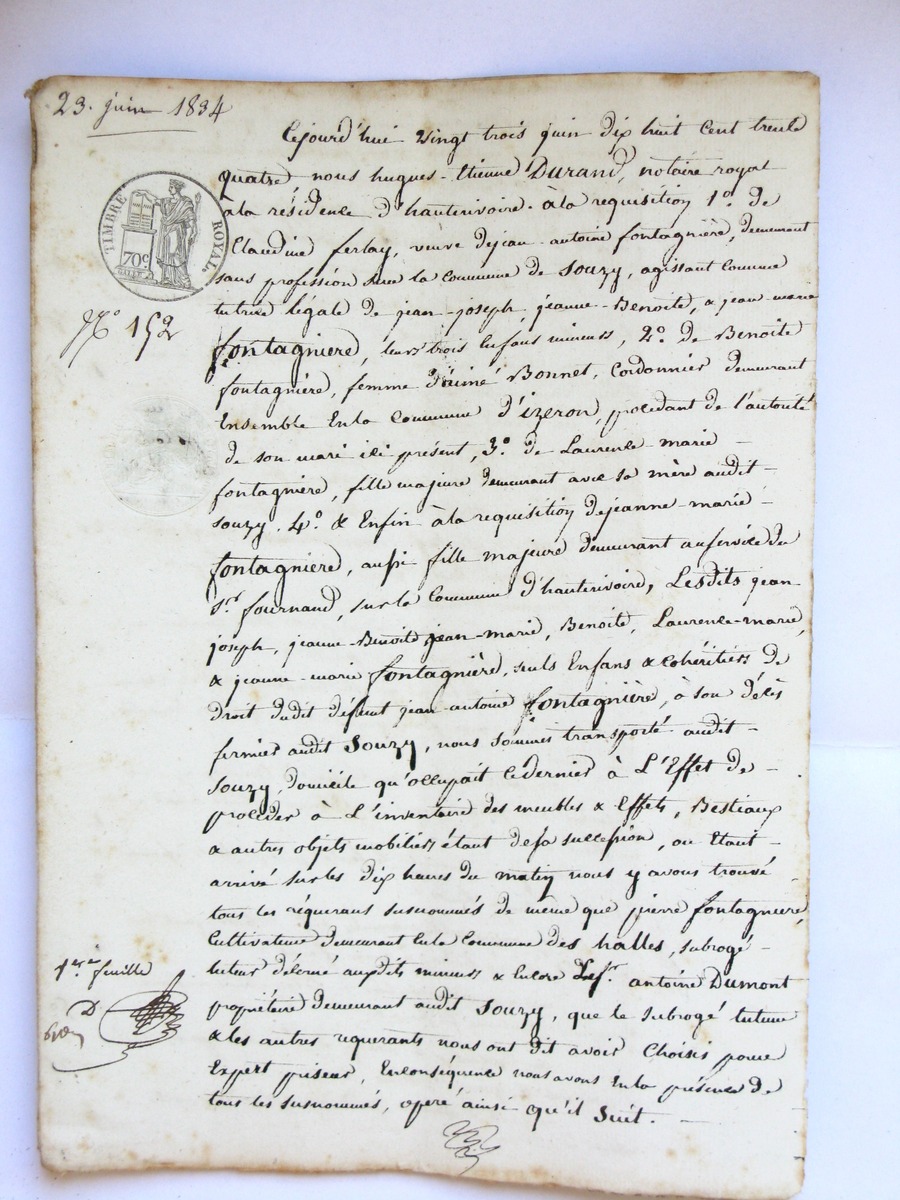 23. juin 1834
TIMBRE ROYAL
70c
N° 152
Cejourd'hui vingt trois juin dix huit cent trente
quatre nous hugues-Etienne Durand, notaire royal
à la résidence d'hauterivoire. à la requisition 1°. de
Claudine ferlay, veuve de jean-antoine fontagnière, demeurant
sans profession sur la commune de Souzy, agissant comme
tutrice légale de jean-joseph, jeanne-Benoite, & jean-marie
fontagniere, leurs trois Enfans mineurs, 2°. de Benoite
fontagnière, femme d'aimé Bonnet, Cordonnier demeurant
Ensemble En la Commune d'izeron, procedant de l'autorité
de son mari ici présent, 3°. de Laurence-marie
fontagnière, fille majeure demeurant avec sa mère audit
Souzy. 4°. & Enfin à la requisition de jeanne-marie
fontagniere, aussi fille majeure demeurant au service du
Sr. fournand, sur la Commune d'hauterivoire, Lesdits jean
joseph, jeanne-Benoite jean-marie, Benoite, Laurence-marie,
& jeanne-marie fontagnière, seuls Enfans & cohéritiers de
droit dudit défunt jean-antoine fontagnière, à son décès
fermier audit Souzy, nous sommes transporté audit
Souzy, domicile qu'occupait ce dernier à L'Effet de
procéder à L'inventaire des meubles & Effets, Bestiaux
& autres objets mobiliers étant de sa succession, ou Etant
arrivé sur les dix heures du matin nous y avons trouvé
tous les réquérans susnommés de même que pierre fontagniere,
Cultivateur demeurant en la Commune des halles, subrogé
tuteur décerné auxdits mineurs & Encore Le Sr. antoine Dumont
propriétaire demeurant audit Souzy, que le subrogé tuteur
& les autres requerants nous ont dit avoir Choisis pour
Expert priseur, En conséquence nous avons En la présence de
tous les susnommés, operé ainsi qu'il Suit.
1ère feuille
D